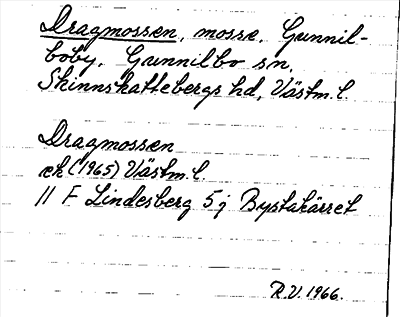 Dragmossen, mosse, Gunnil-
boby, Gunnilbo sn,
Skinnskattebergs hd, Västm. l.
Dragmossen
ek (1965) Västm. l.
11 F Lindesberg 5 j Bystakärret
R.V. 1966.